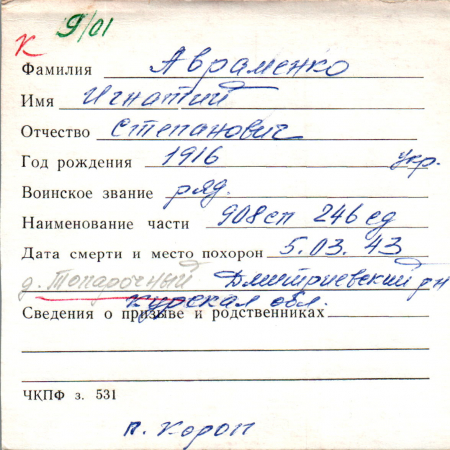 К 9/01
Фамилия Авраменко
Имя Игнатий
Отчество Степанович
Год рождения 1916 укр.
Воинское звание ряд.
Наименование части 908 сп 246 сд
Дата смерти и место похорон 5.03.43
д. Топарочный Дмитриевский рн
Курская обл.
Сведения о призыве и родственниках
ЧКПФ з. 531
п. Короп